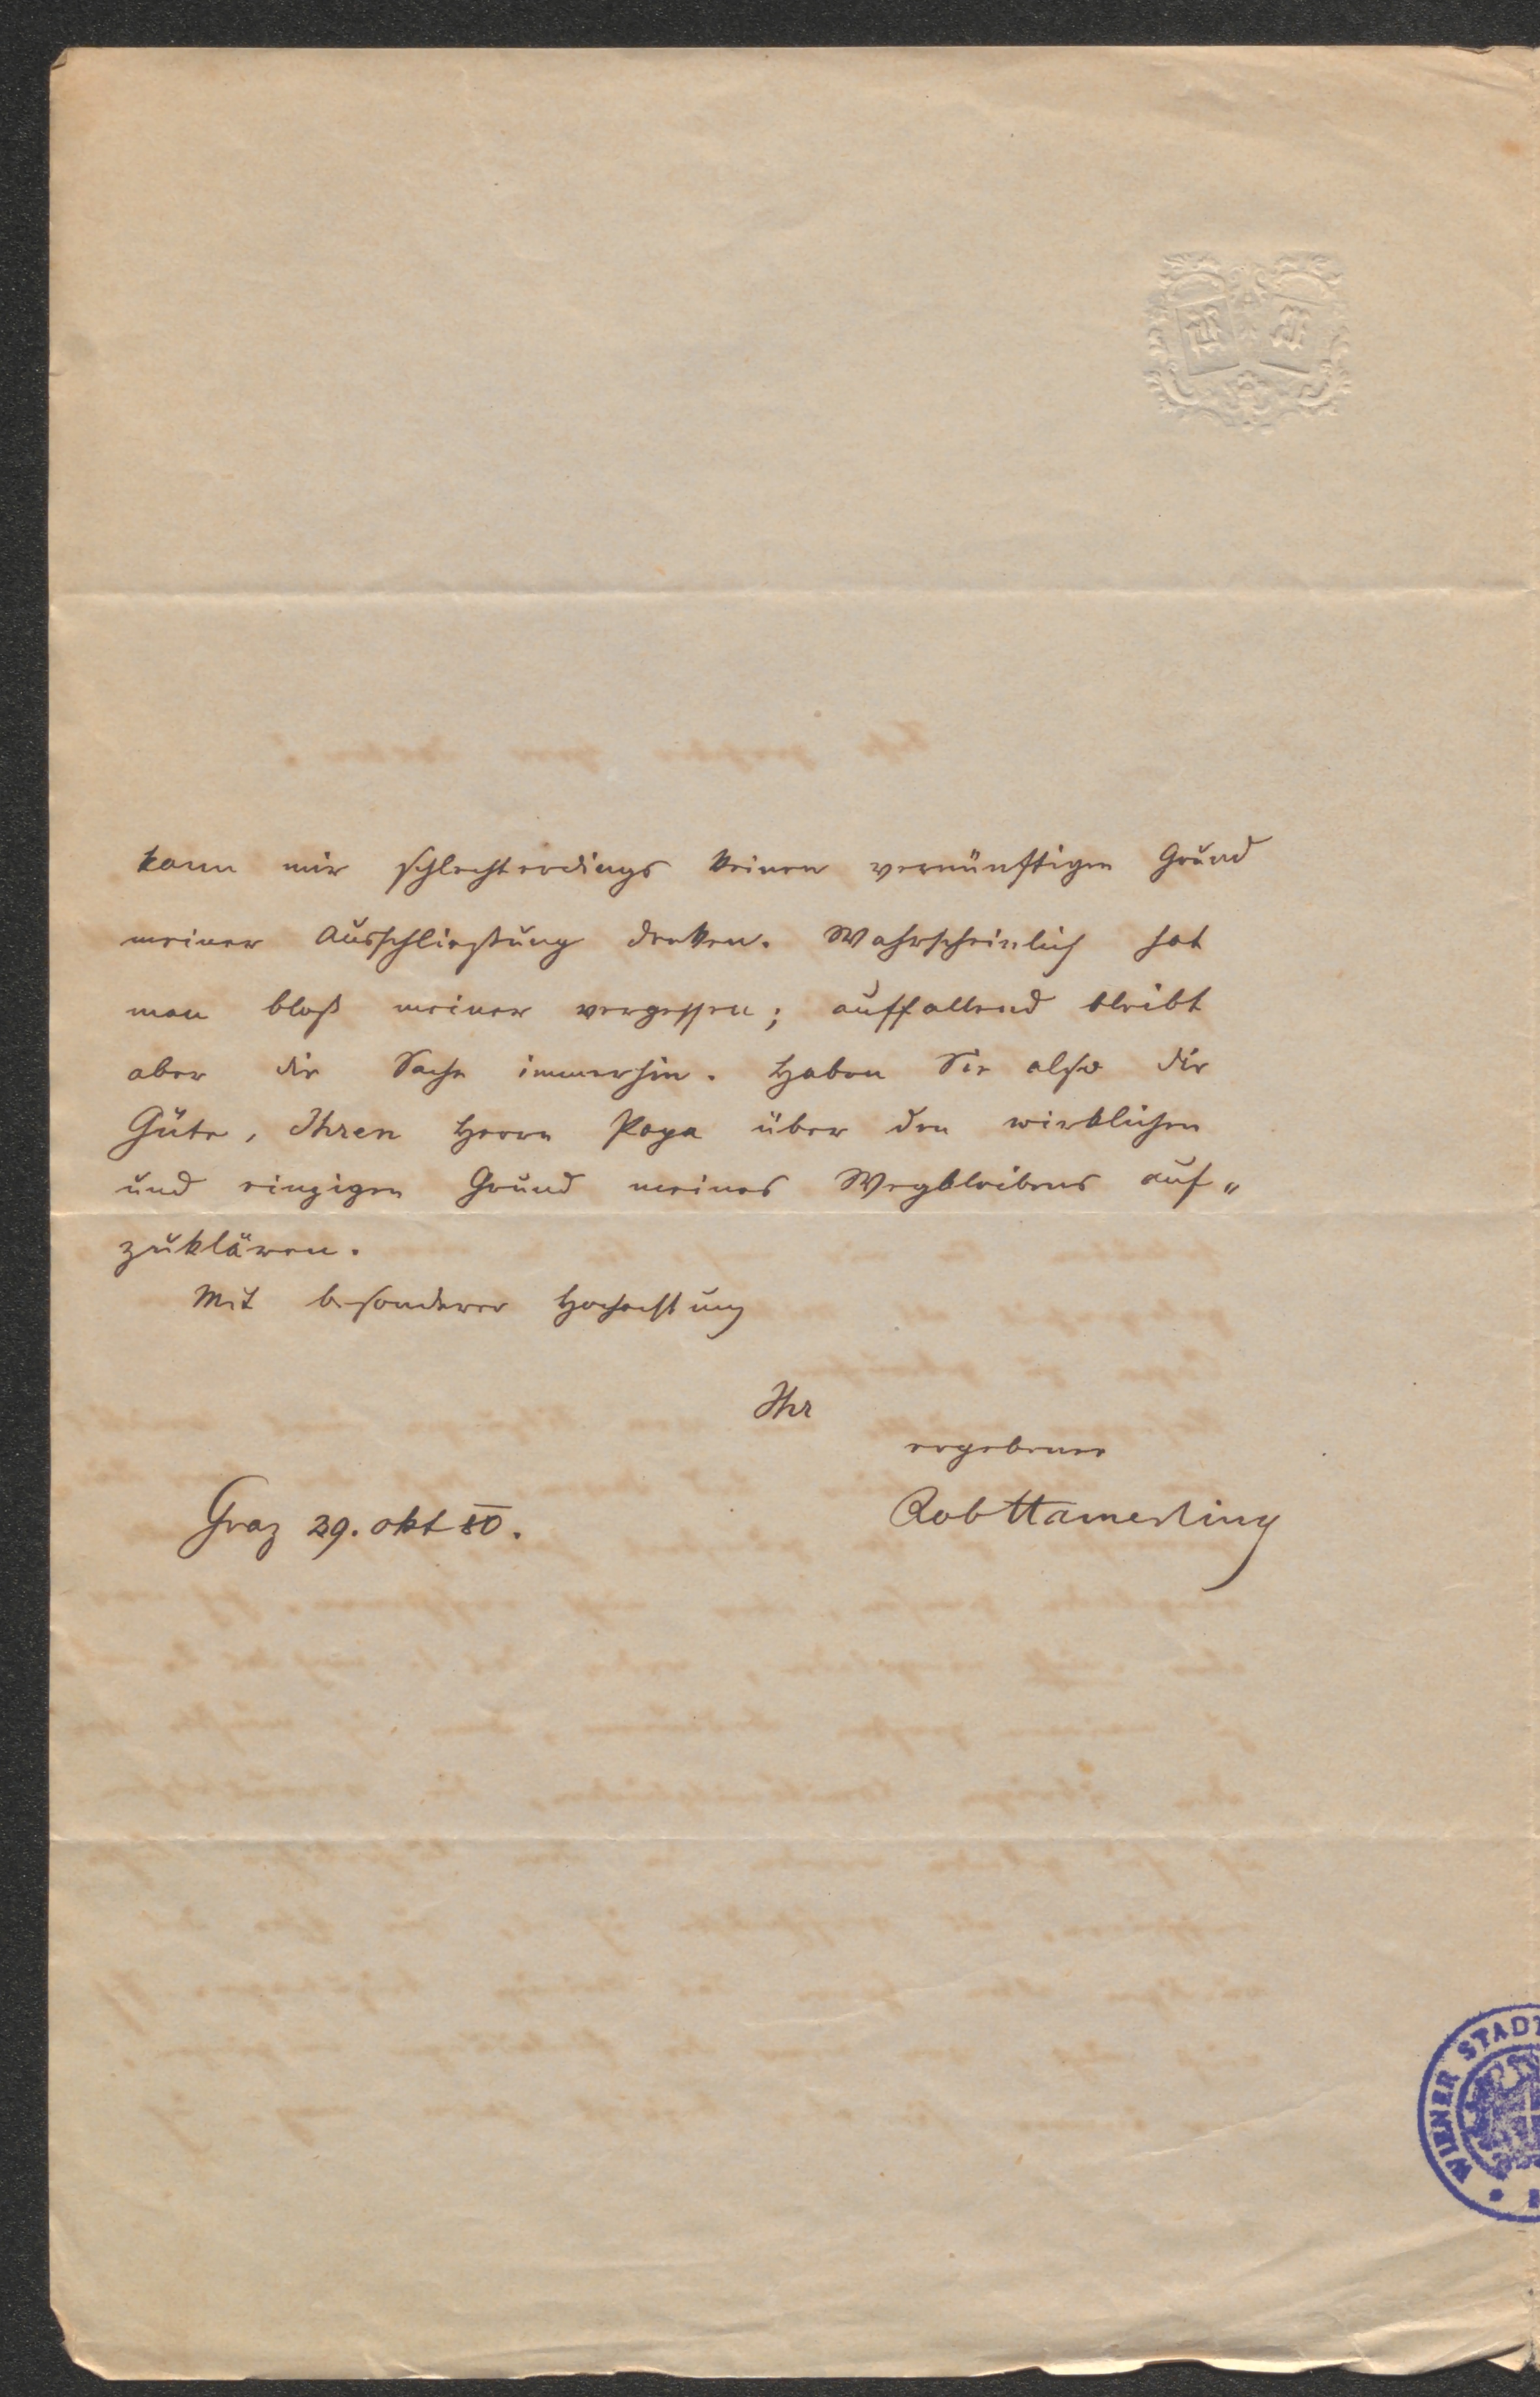 kann mir schlechterdings keinen vernünftigen Grund
meiner Ausschließung denken. Wahrscheinlich hat
man bloß meiner vergessen; auffallend bleibt
aber die Sache immerhin. Haben Sie also die
Güte, Ihren Herrn Papa über den wirklichen
und einzigen Grund meines Wegbleibens auf„
zuklären.
Mit besonderer Hochachtung
Ihr
ergebener
Rob Hamerling
Graz 29. Okt 80.
WIENER STADT